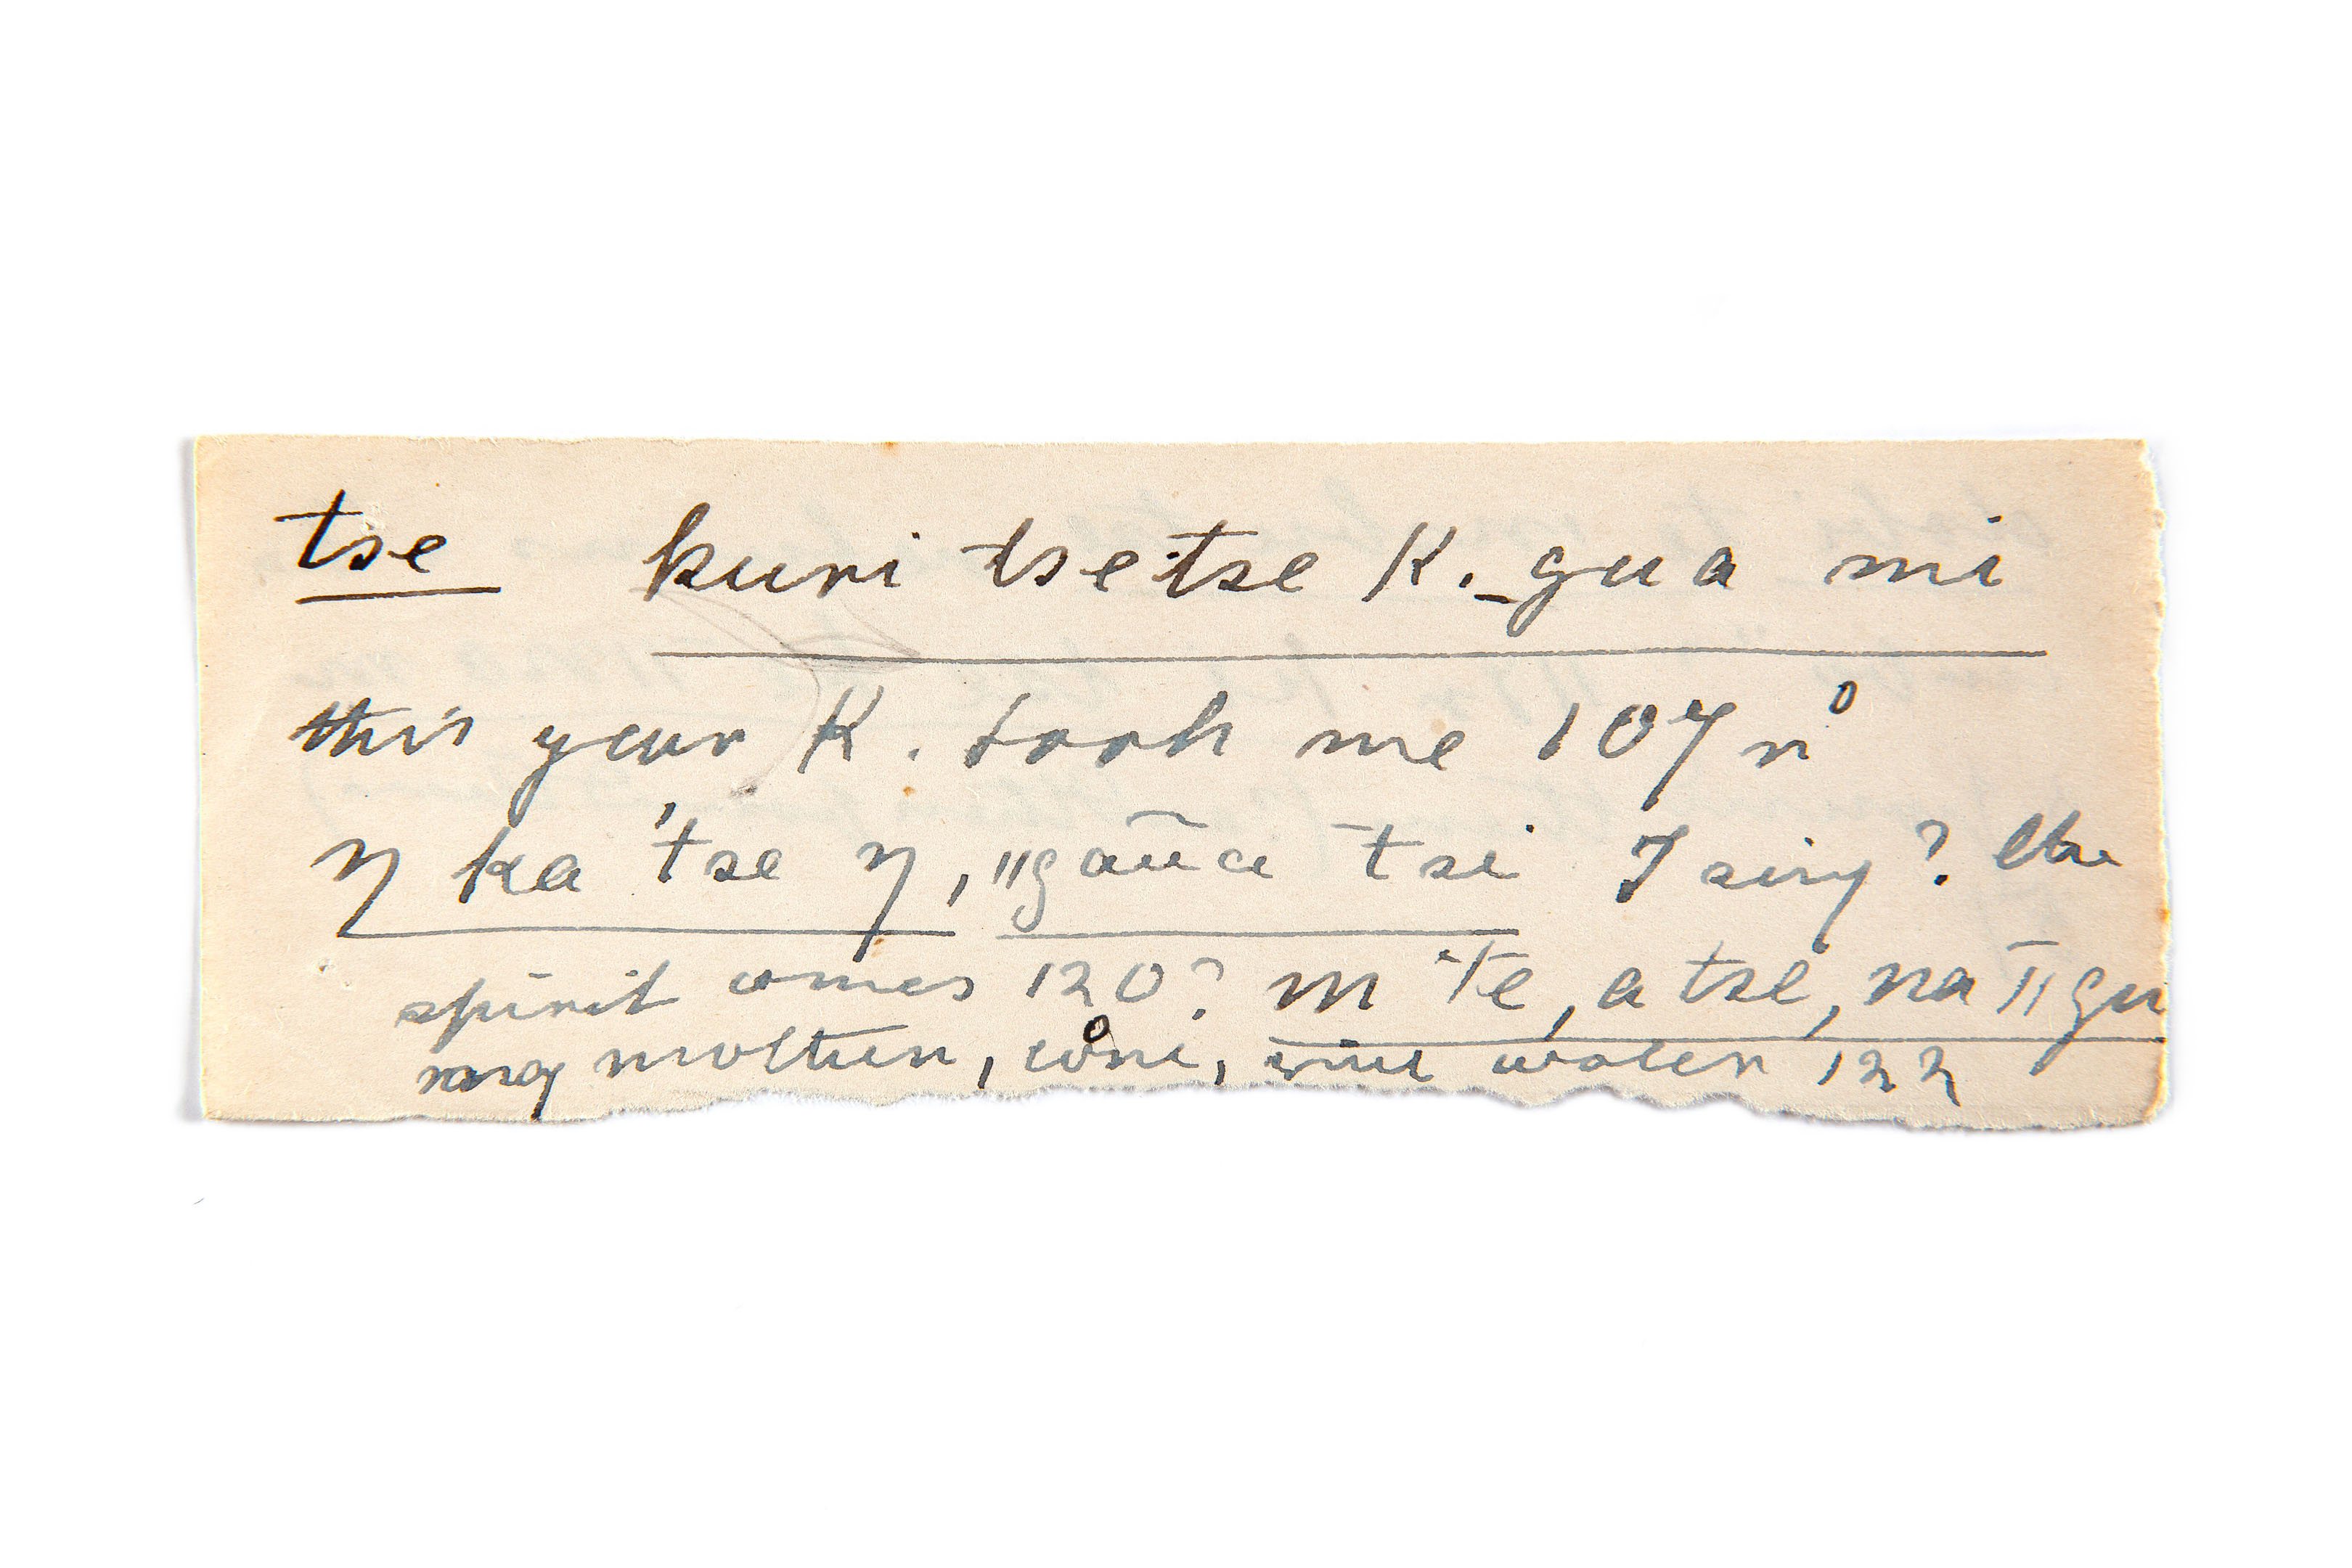 tse kuri tsetse K._gua mi
this year K. took me 107 n°
ŋ ka 'tse ŋ, "gaūa tsi I siŋ? the
spirit comes 120? m 'te, a tse, na "gu
my mother, come, give water 122